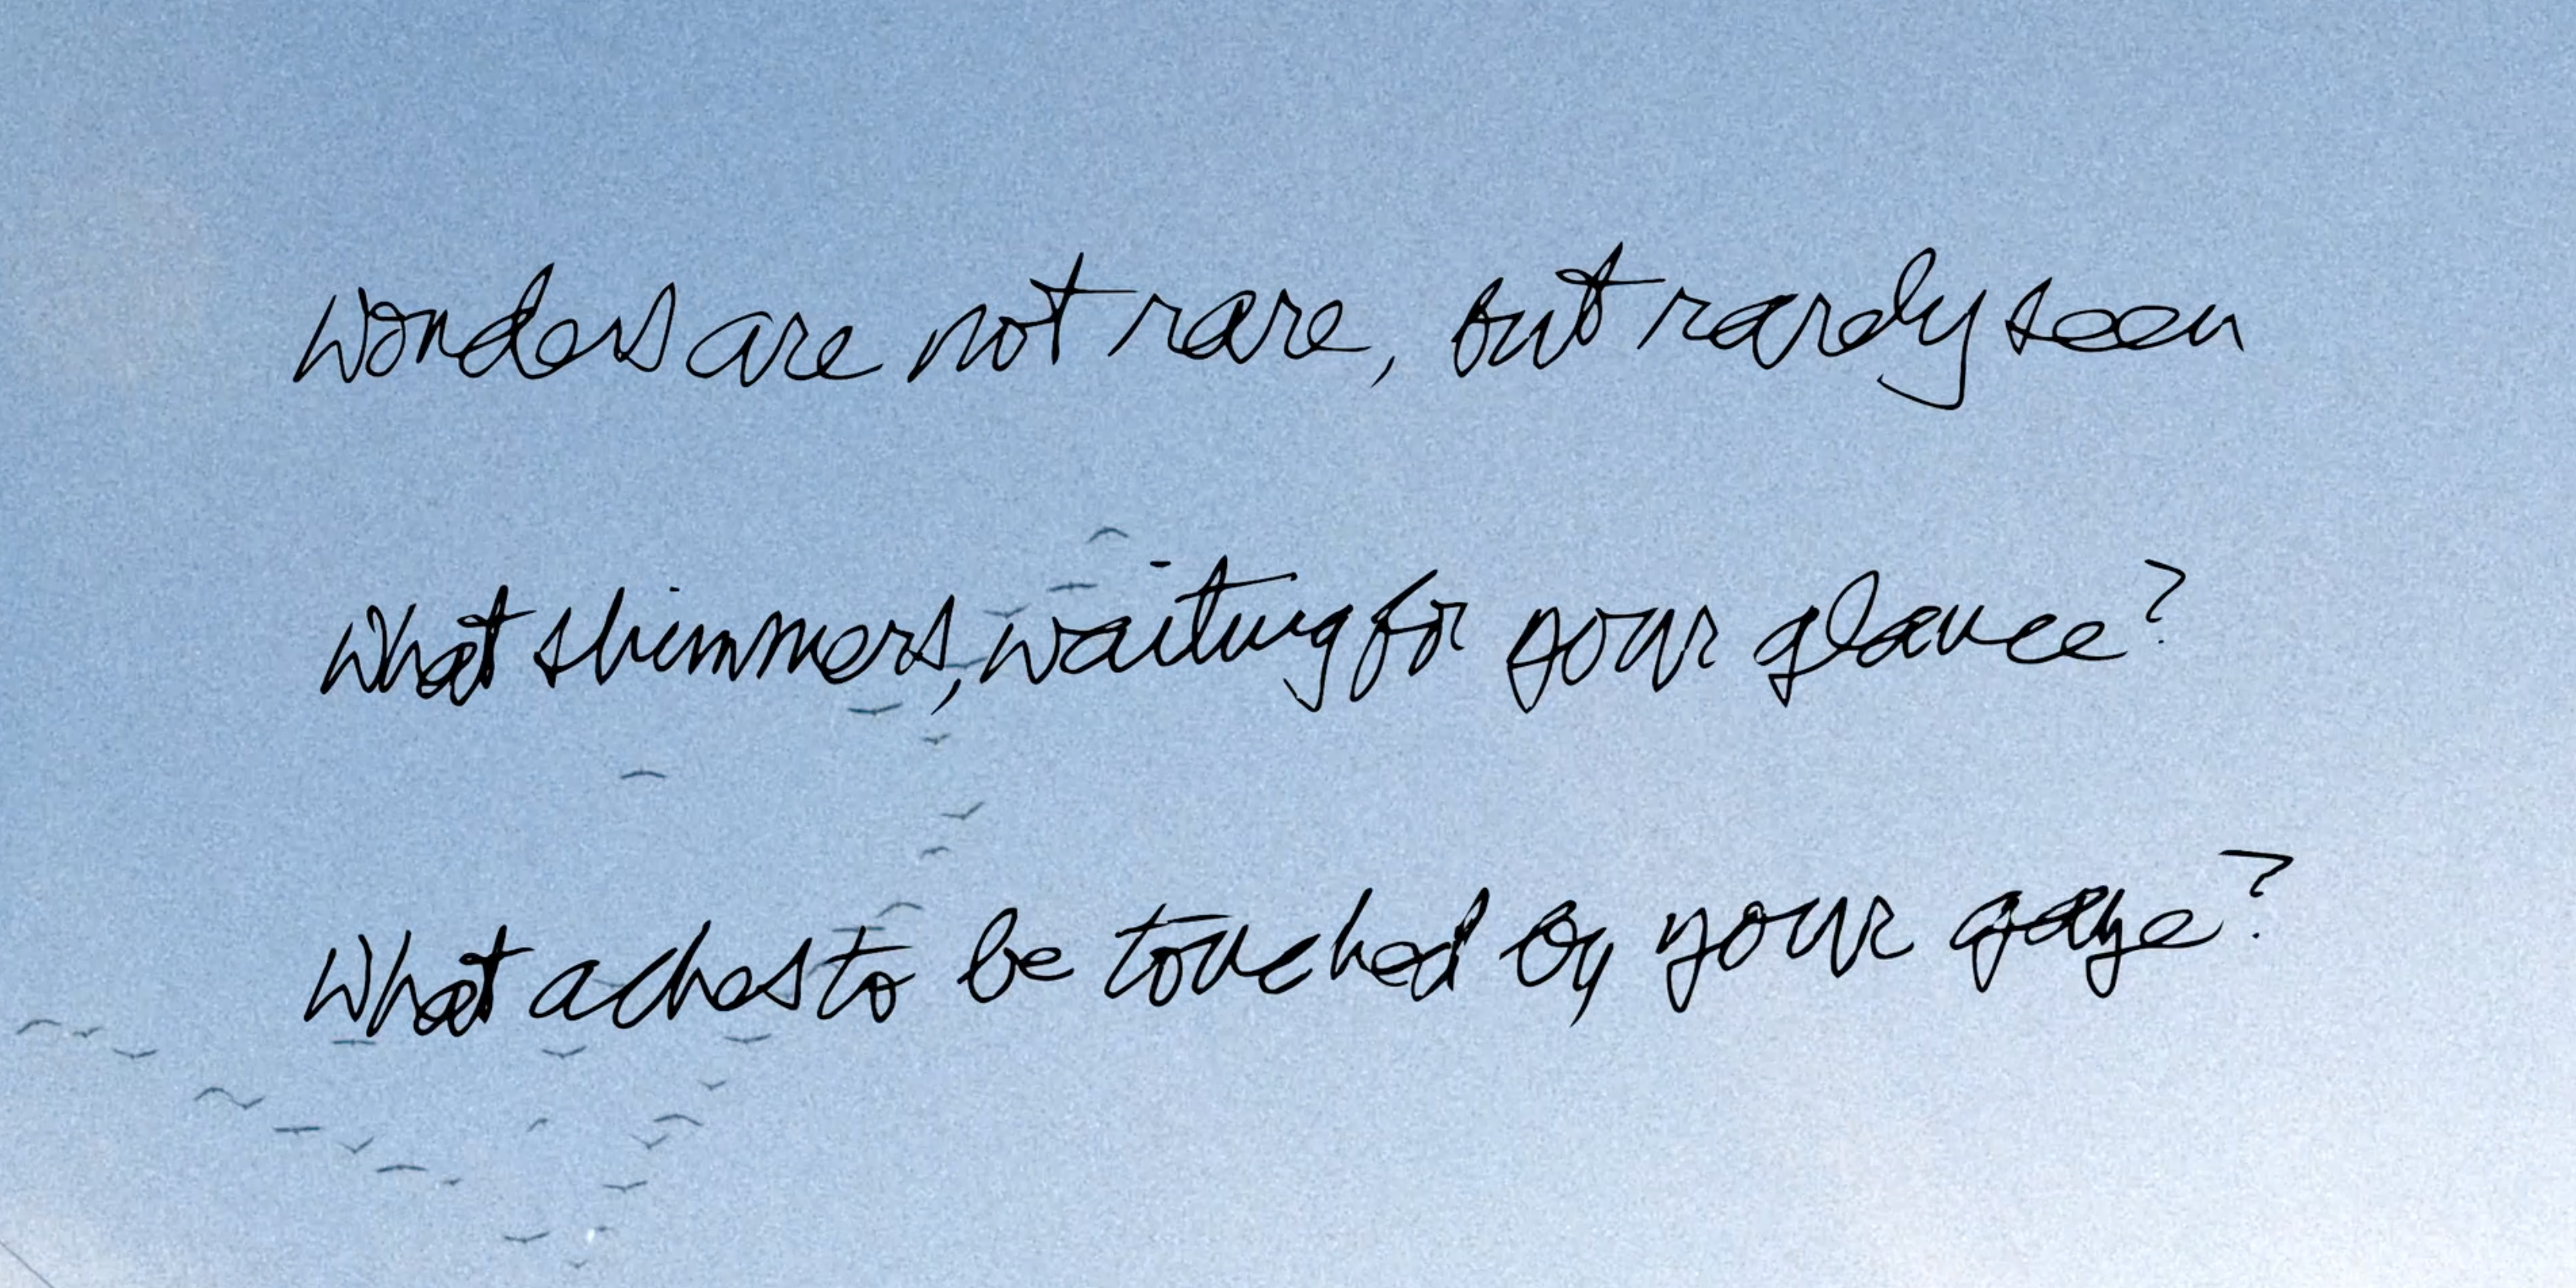 Wonders are not rare, but rarely seen
What shimmers, waiting for your glance?
What aches to be touched by your gaze?